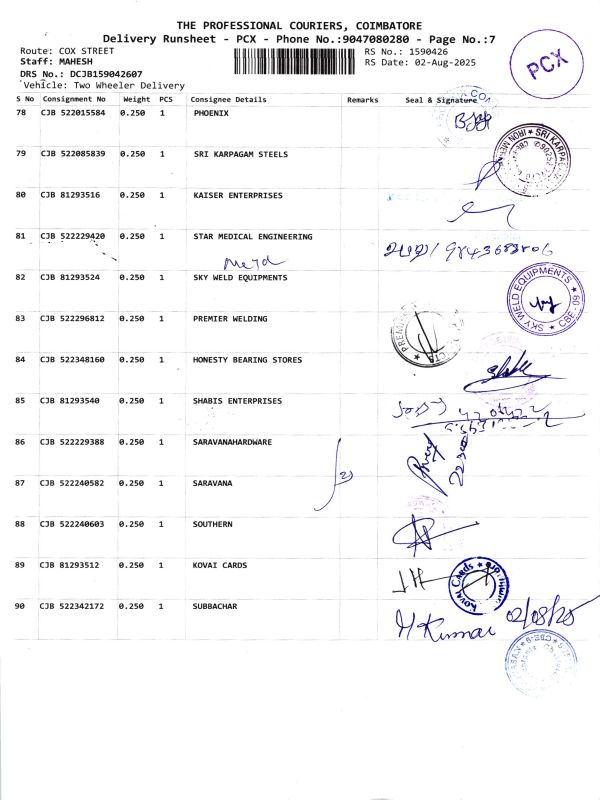 THE PROFESSIONAL COURIERS, COIMBATORE
Delivery Runsheet - PCX - Phone No.:9047080280 - Page No.:7
Route: COX STREET
RS No.: 1590426
Staff: MAHESH
RS Date: 02-Aug-2025
DRS No.: DCJB159042607
Vehicle: Two Wheeler Delivery
PCX
S No Consignment No Weight PCS Consignee Details Remarks Seal & Signature
78 CJB 522015584 0.250 1 PHOENIX
79 CJB 522085839 0.250 1 SRI KARPAGAM STEELS
SRI KARPAG
80 CJB 81293516 0.250 1 KAISER ENTERPRISES
81 CJB 522229420 0.250 1 STAR MEDICAL ENGINEERING
82 CJB 81293524 0.250 1 SKY WELD EQUIPMENTS
SKY WELD EQUIPMENTS ★ CBE
83 CJB 522296812 0.250 1 PREMIER WELDING
PREMIER
84 CJB 522348160 0.250 1 HONESTY BEARING STORES
85 CJB 81293540 0.250 1 SHABIS ENTERPRISES
86 CJB 522229388 0.250 1 SARAVANAHARDWARE
87 CJB 522240582 0.250 1 SARAVANA
88 CJB 522240603 0.250 1 SOUTHERN
89 CJB 81293512 0.250 1 KOVAI CARDS
Kovai Cards
90 CJB 522342172 0.250 1 SUBBACHAR
H Kumar 02/08/25